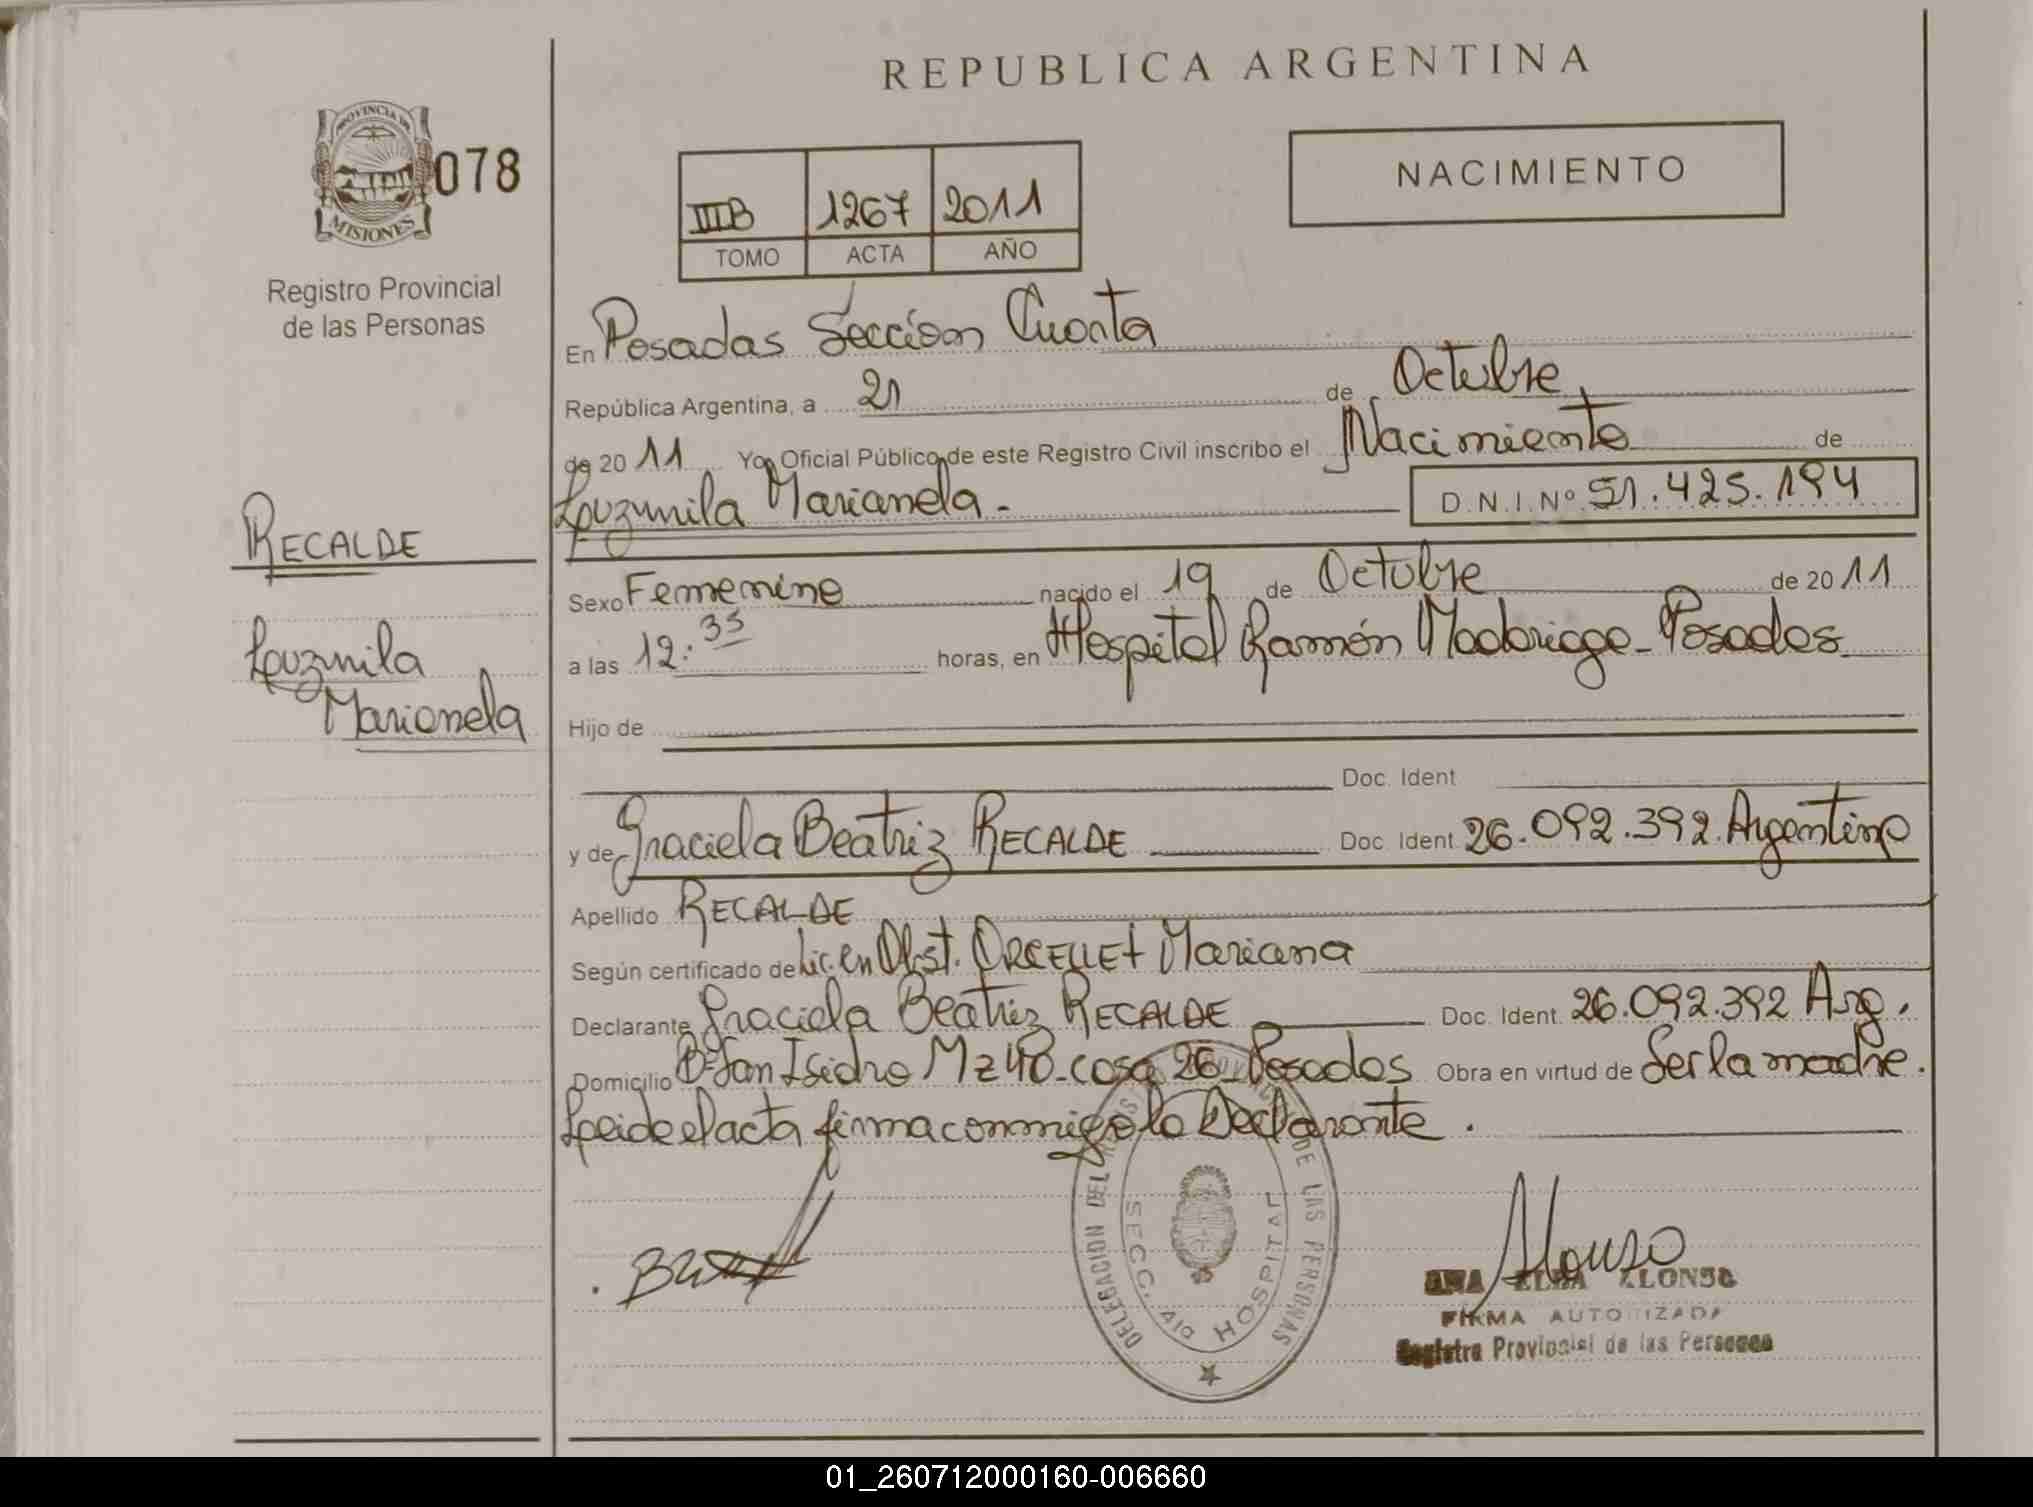 REPUBLICA ARGENTINA
PROVINCIA DE
MISIONES
078
Registro Provincial
de las Personas
NACIMIENTO
IIIB 1267 2011
TOMO ACTA AÑO
En Posadas Sección Cuarta
República Argentina, a 21 de Octubre
de 20 11 Yo, Oficial Público de este Registro Civil inscribo el Nacimiento de
Luzmila Marianela.- D.N.I.Nº 51.425.194
RECALDE
Luzmila
Marianela
Sexo Femenino nacido el 19 de Octubre de 20 11
a las 12:35 horas, en Hospital Ramón Madariaga - Posadas
Hijo de
Doc. Ident
y de Graciela Beatriz RECALDE Doc. Ident. 26.092.392. Argentina
Apellido RECALDE
Según certificado de Lic. en Obst. Mariana
Declarante Graciela Beatriz RECALDE Doc. Ident. 26.092.392 Arg.
Domicilio Bº San Isidro Mz 40 - casa 26 - Posadas Obra en virtud de Ser la madre.
Leida el acta firma conmigo la Declarante.
DELEGACION DEL DE LAS PERSONAS
SECC. 4ta HOSPITAL
Alonso
ANA ELBA ALONSO
FIRMA AUTORIZADA
Registro Provincial de las Personas
01_260712000160-006660